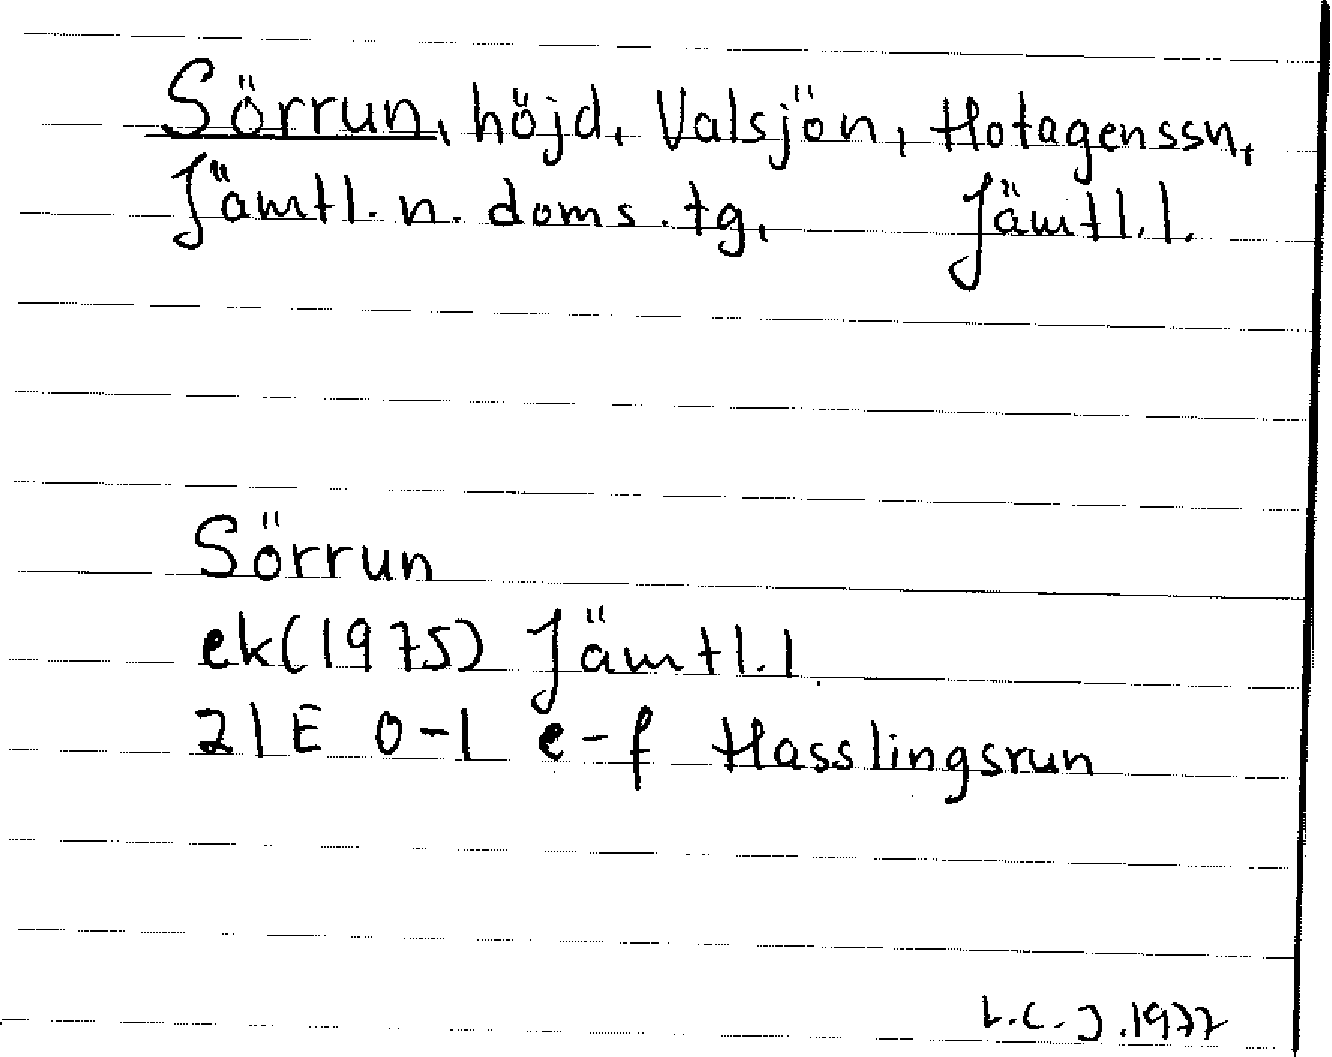 Sörrun, höjd, Valsjön, Hotagenssn,
Jämtl. n. doms. tg, Jämtl. l.
Sörrun
ek(1975) Jämtl. l.
21E 0-1 e-f Hasslingsrun
L.C.J. 1977